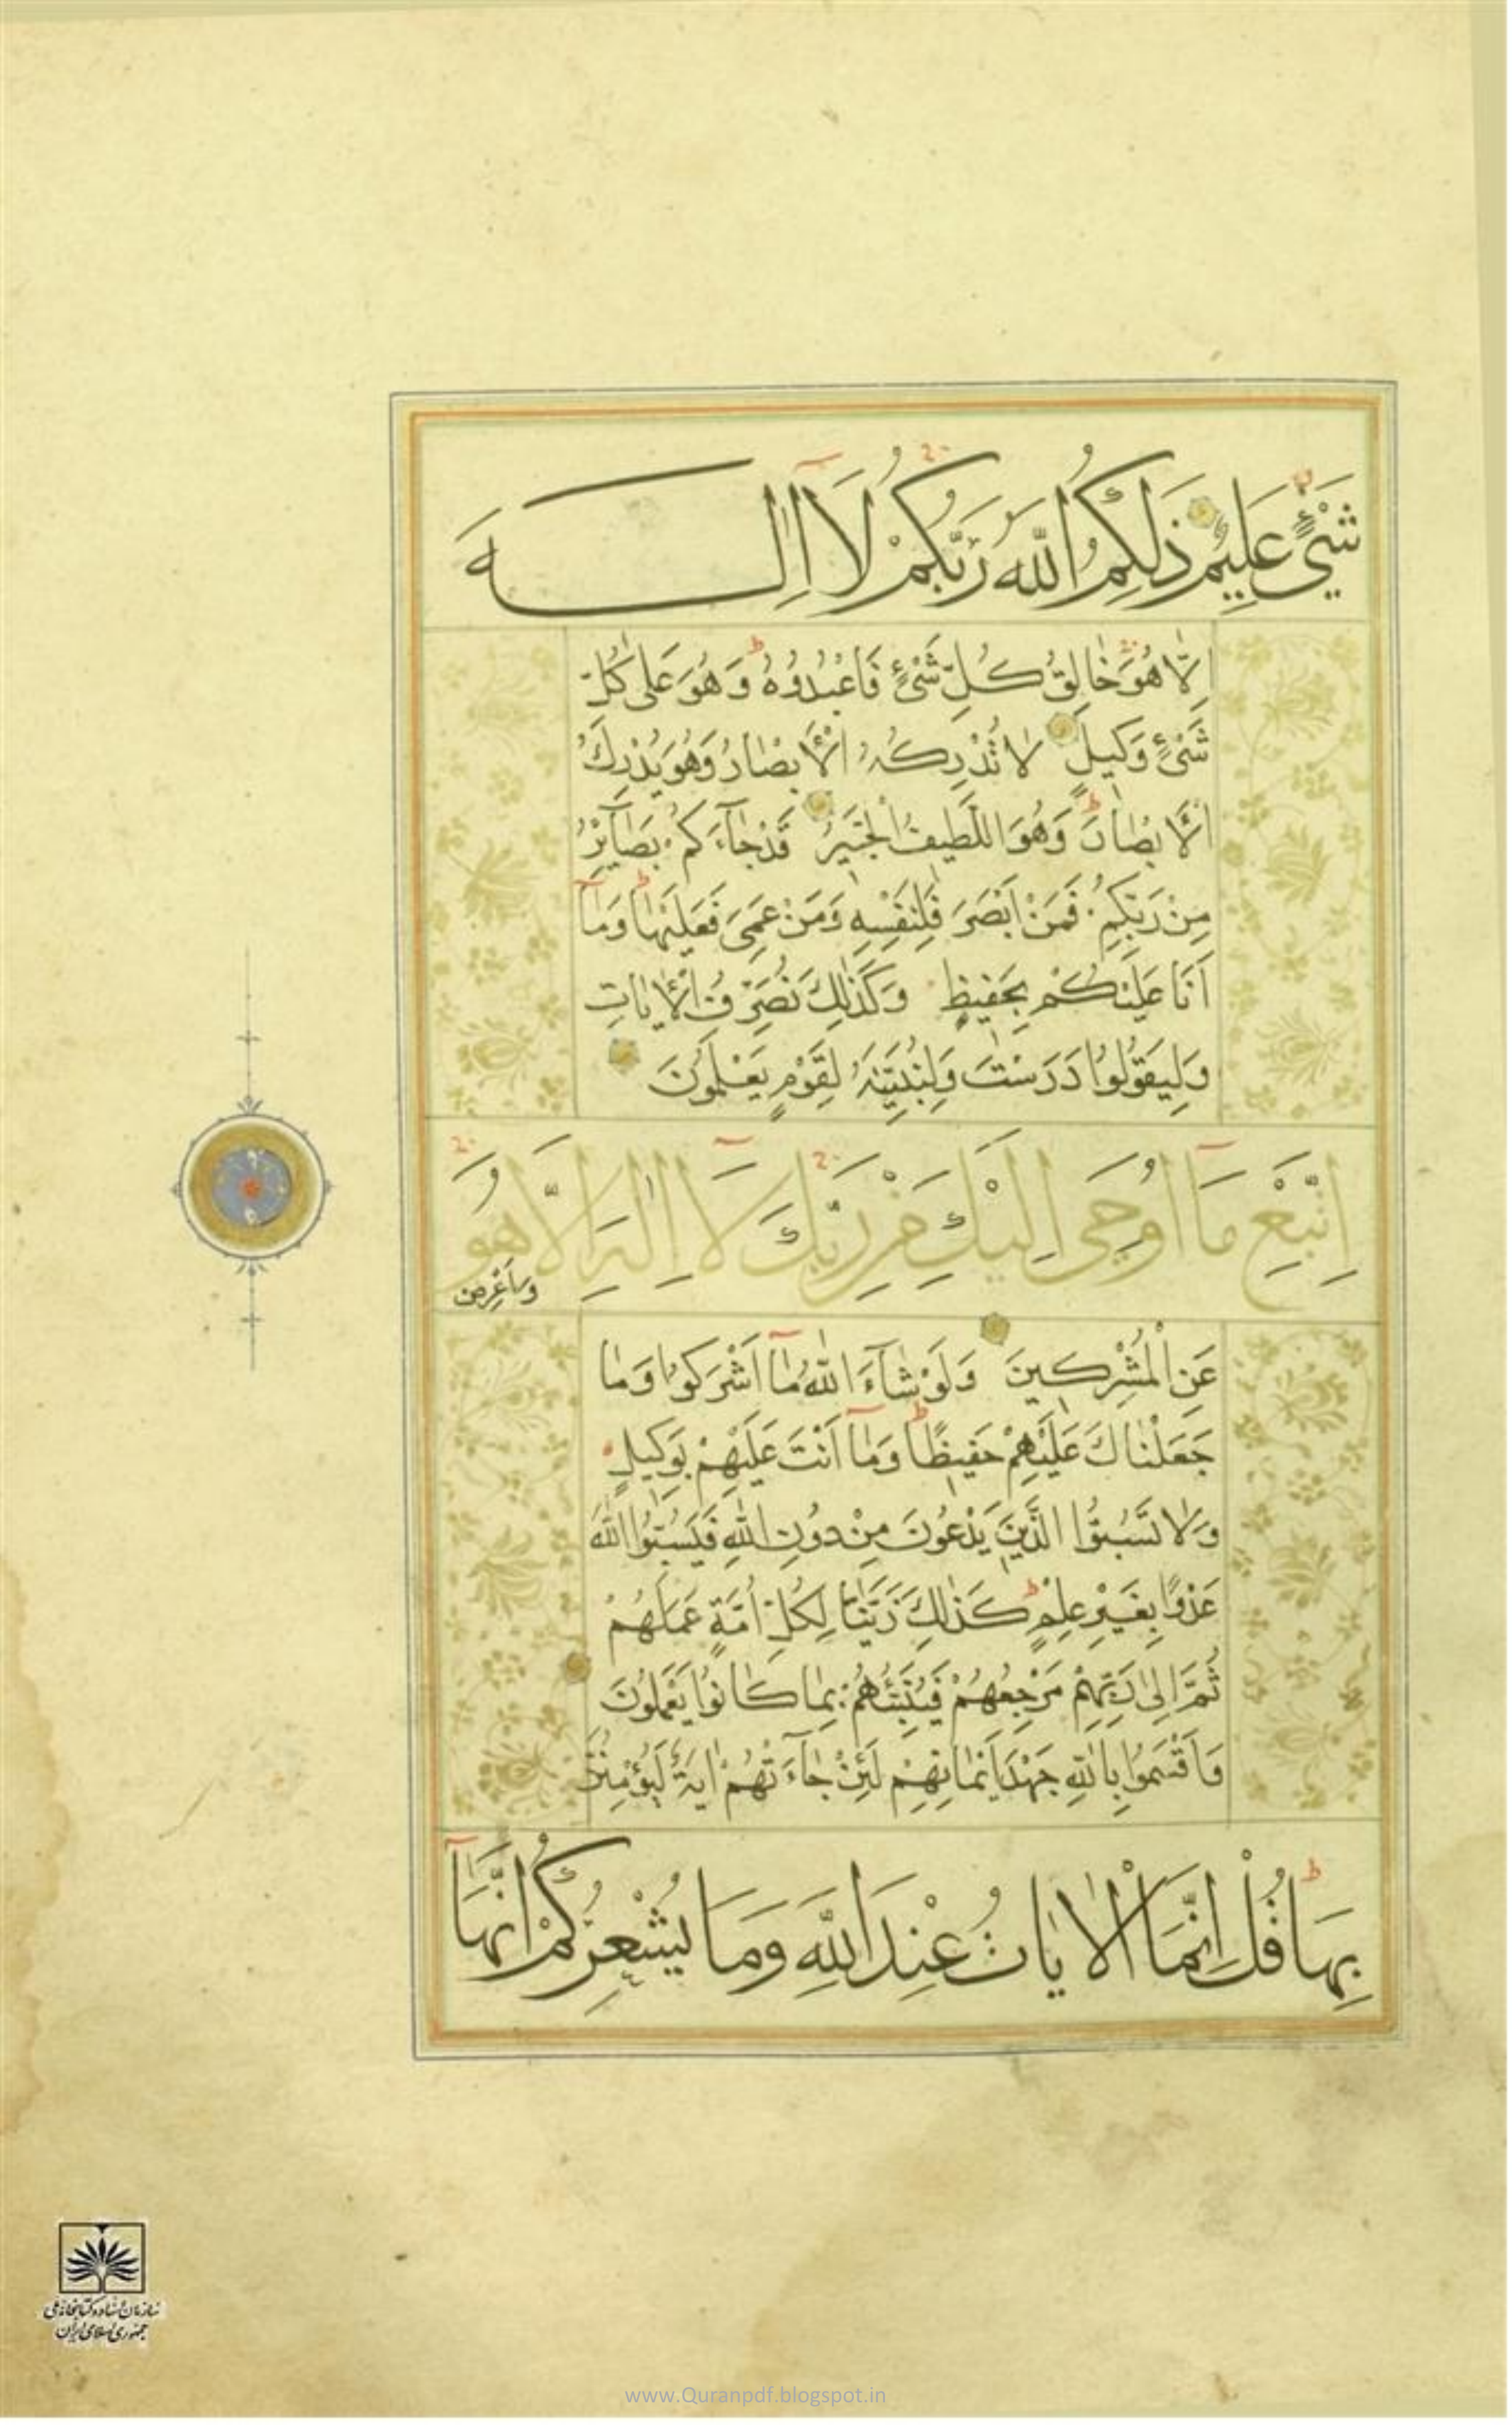 شَيْءٍ عَلِيمٌ ذَلِكُمُ اللَّهُ رَبُّكُمْ لَا إِلَهَ
إِلَّا هُوَ خَالِقُ كُلِّ شَيْءٍ فَاعْبُدُوهُ وَهُوَ عَلَى كُلِّ
شَيْءٍ وَكِيلٌ لَا تُدْرِكُهُ الْأَبْصَارُ وَهُوَ يُدْرِكُ
الْأَبْصَارَ وَهُوَ اللَّطِيفُ الْخَبِيرُ قَدْ جَاءَكُمْ بَصَائِرُ
مِنْ رَبِّكُمْ فَمَنْ أَبْصَرَ فَلِنَفْسِهِ وَمَنْ عَمِيَ فَعَلَيْهَا وَمَا
أَنَا عَلَيْكُمْ بِحَفِيظٍ وَكَذَلِكَ نُصَرِّفُ الْآيَاتِ
وَلِيَقُولُوا دَرَسْتَ وَلِنُبَيِّنَهُ لِقَوْمٍ يَعْلَمُونَ
اِتَّبِعْ مَا أُوحِيَ إِلَيْكَ مِنْ رَبِّكَ لَا إِلَهَ إِلَّا هُوَ
وَأَعْرِضْ
عَنِ الْمُشْرِكِينَ وَلَوْ شَاءَ اللَّهُ مَا أَشْرَكُوا وَمَا
جَعَلْنَاكَ عَلَيْهِمْ حَفِيظًا وَمَا أَنْتَ عَلَيْهِمْ بِوَكِيلٍ
وَلَا تَسُبُّوا الَّذِينَ يَدْعُونَ مِنْ دُونِ اللَّهِ فَيَسُبُّوا اللَّهَ
عَدْوًا بِغَيْرِ عِلْمٍ كَذَلِكَ زَيَّنَّا لِكُلِّ أُمَّةٍ عَمَلَهُمْ
ثُمَّ إِلَى رَبِّهِمْ مَرْجِعُهُمْ فَيُنَبِّئُهُمْ بِمَا كَانُوا يَعْمَلُونَ
وَأَقْسَمُوا بِاللَّهِ جَهْدَ أَيْمَانِهِمْ لَئِنْ جَاءَتْهُمْ آيَةٌ لَيُؤْمِنُنَّ
بِهَا قُلْ إِنَّمَا الْآيَاتُ عِنْدَ اللَّهِ وَمَا يُشْعِرُكُمْ أَنَّهَا
سازمان اسناد و کتابخانه ملی
جمهوری اسلامی ایران
www.Quranpdf.blogspot.in